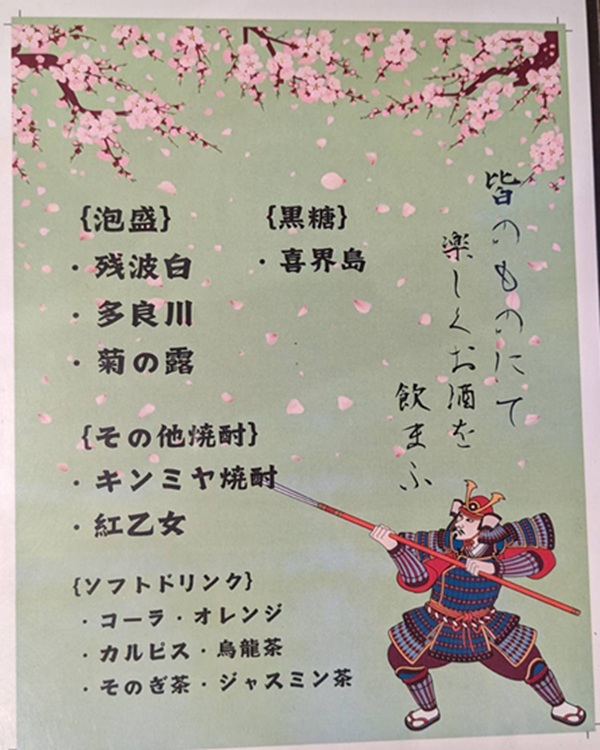 皆のものにて
楽しくお酒を
飲まふ
{泡盛}
・残波白
・多良川
・菊の露
{黒糖}
・喜界島
{その他焼酎}
・キンミヤ焼酎
・紅乙女
{ソフトドリンク}
・コーラ・オレンジ
・カルピス・烏龍茶
・そのぎ茶・ジャスミン茶